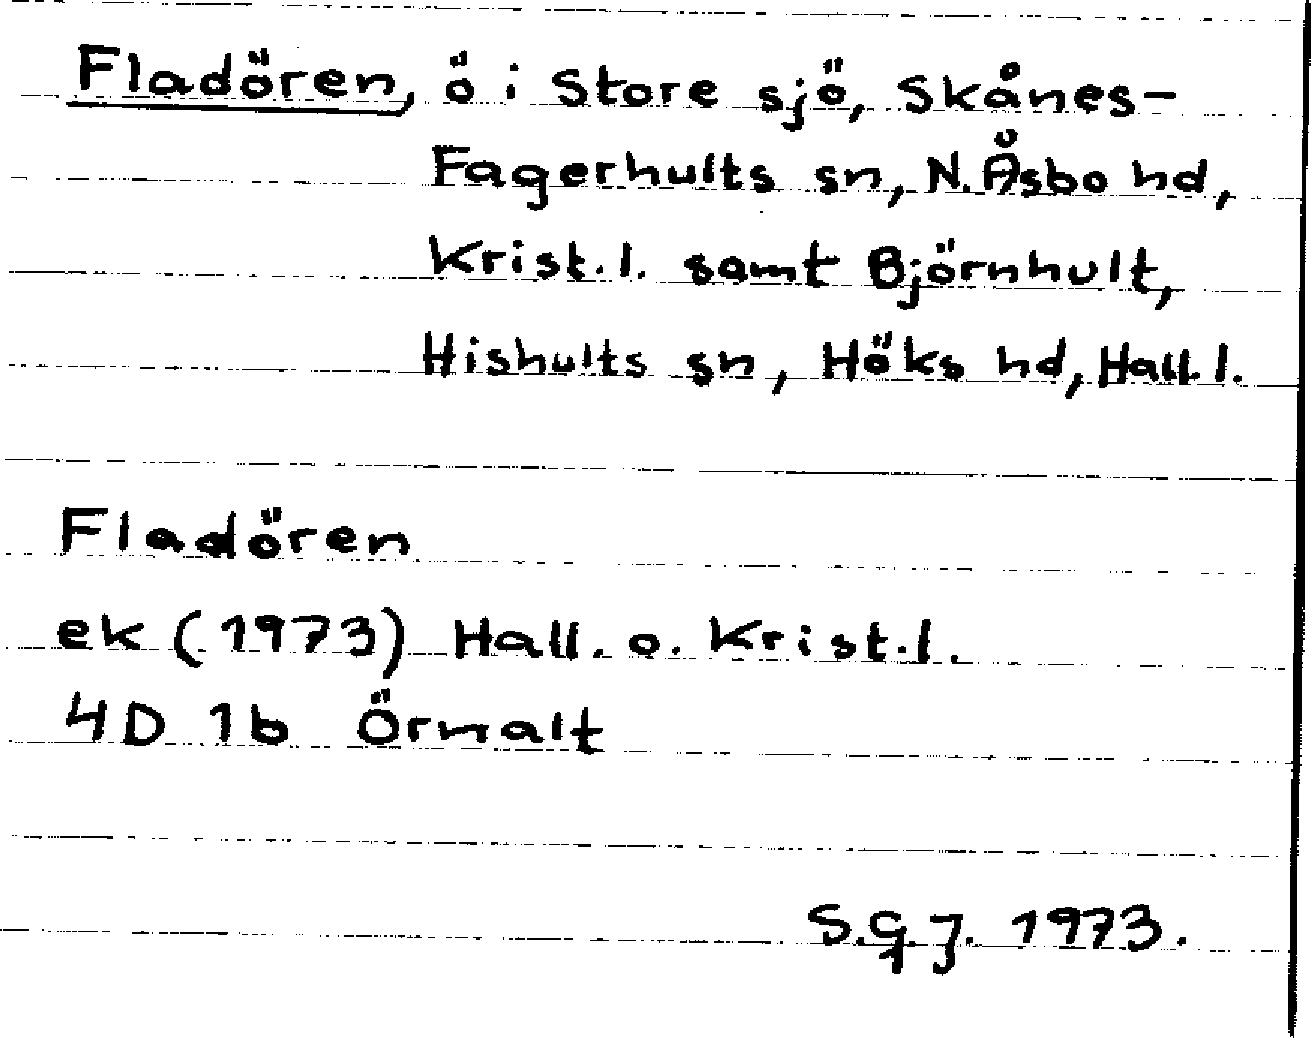 Fladören, ö i Store sjö, Skånes-
Fagerhults sn, N. Åsbo hd,
Krist. l. samt Björnhult,
Hishults sn, Höks hd, Hall. l.
Fladören
ek (1973) Hall. o. Krist. l.
4D 1b Örmalt
S.G.J. 1973.